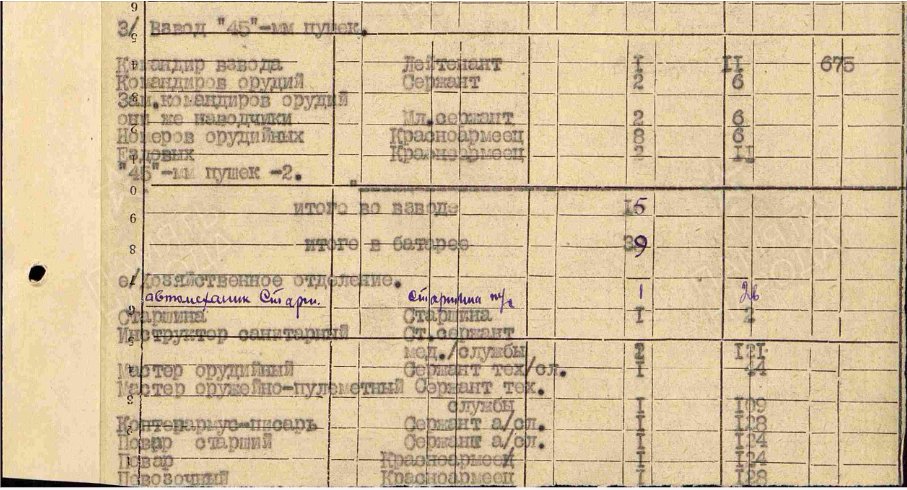 3/ Взвод "45"-мм пушек.
Командир взвода Лейтенант I II 675
Командиров орудий Сержант 2 6
Зам.командиров орудий
они же наводчики Мл.сержант 2 6
Номеров орудийных Красноармеец 8 6
Ездовых Красноармеец 2 II
"45"-мм пушек -2.
итого во взводе 15
итого в батарее 39
е/Хозяйственное отделение.
автомеханик Старш. Старшина 1 26
Старшина Старшина I 2
Инструктор санитарный Ст.сержант
мед./службы 2 I2I
Мастер орудийный Сержант тех/сл. I 44
Мастер оружейно-пулеметный Сержант тех.
службы I I09
Контерармус-писарь Сержант а/сл. I I28
Повар старший Сержант а/сл. I I24
Повар Красноармеец I I24
Повозочный Красноармеец I I28